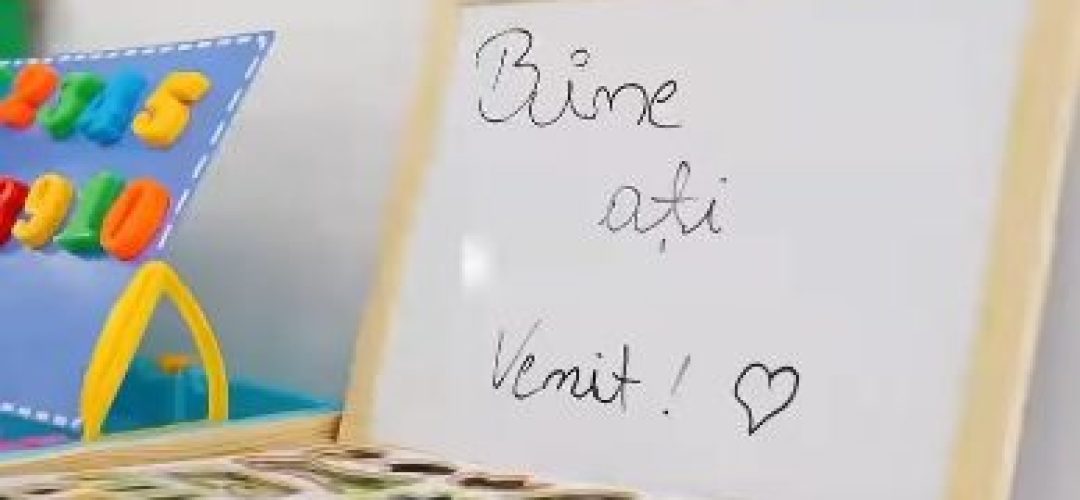 2345
910
Bine
ați
Venit! ♡